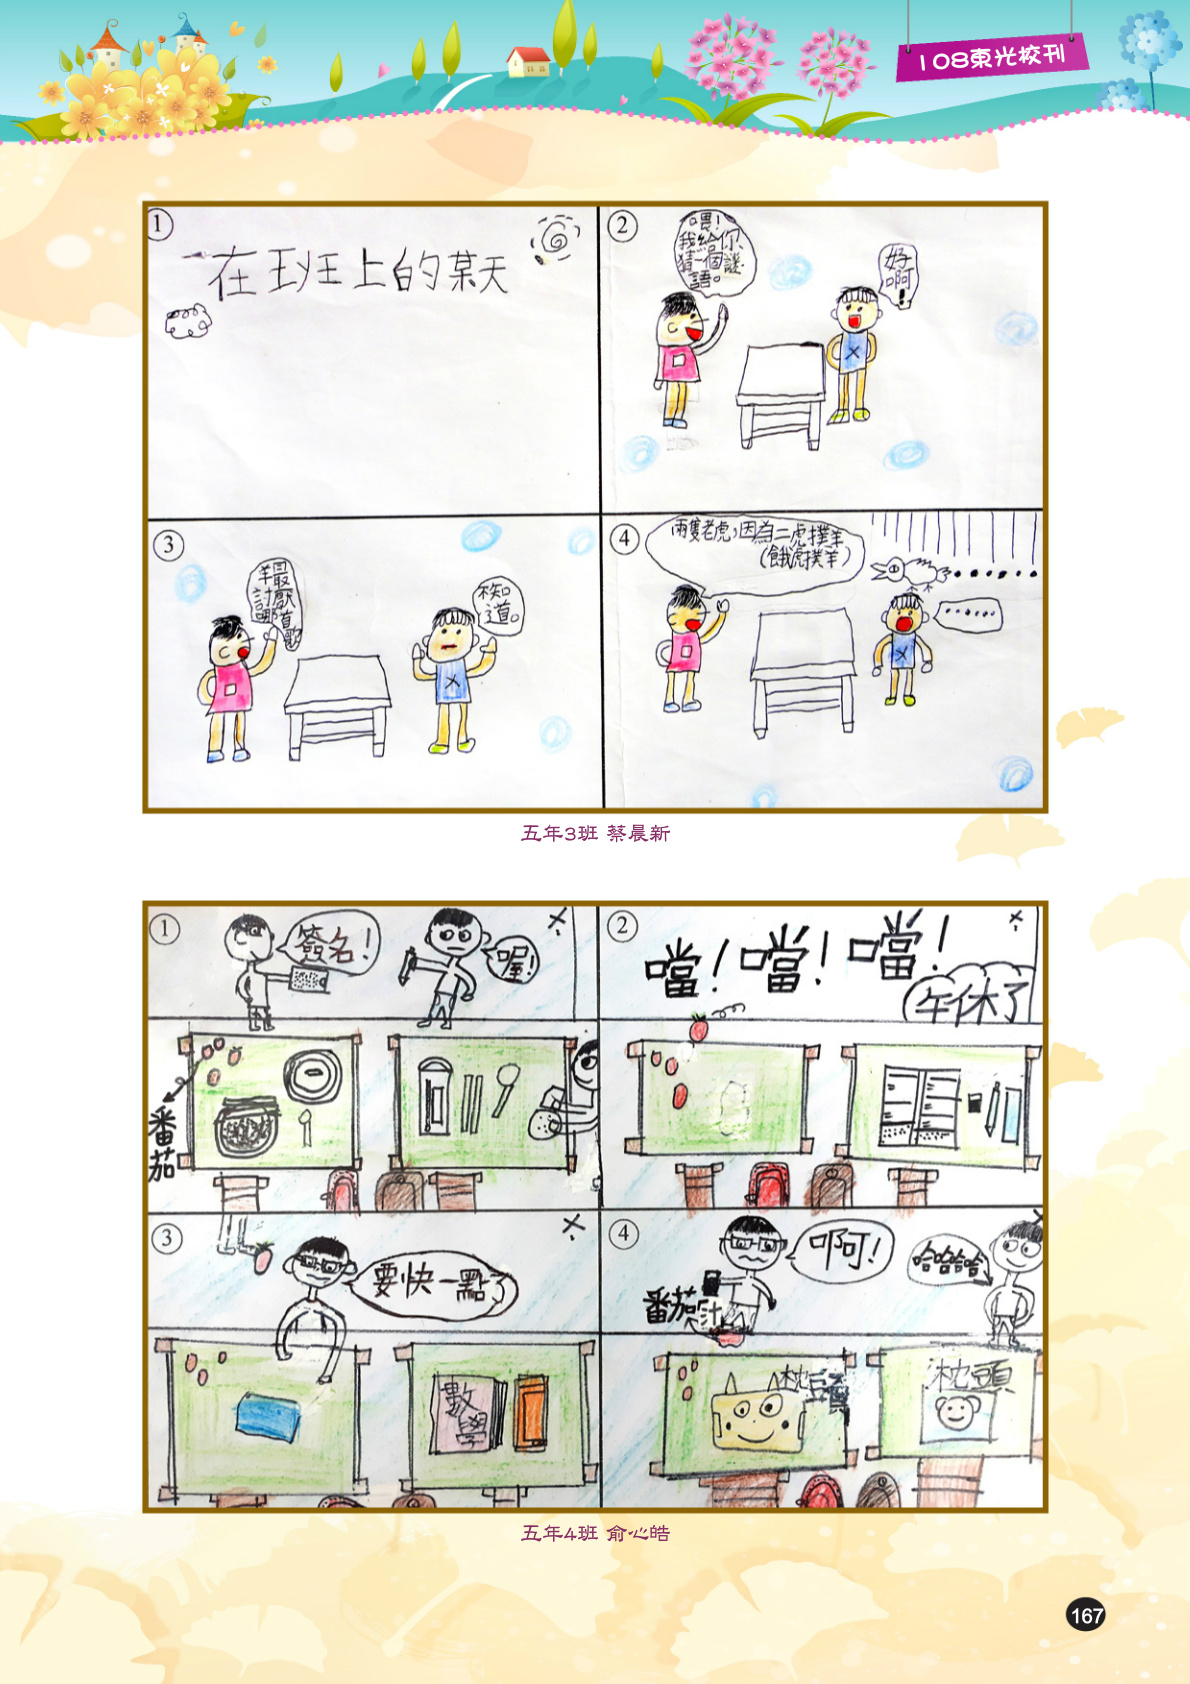 108東光校刊
1
在班上的某天
2
喂!
我給你
猜一個謎
語。
好啊!
3
羊最
討厭
哪首
歌
不知
道。
4
兩隻老虎,因為二虎撲羊
(餓虎撲羊)
......
五年3班 蔡晨新
1
簽名!
喔!
番茄
2
噹!噹!噹!
午休了
3
要快一點了
數學
4
啊!
哈哈哈哈
番茄汁
枕頭
枕頭
五年4班 俞心皓
167